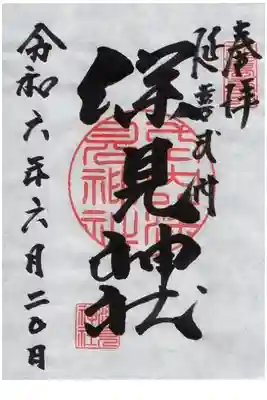 奉拝
延喜式内
深見神社
令和六年六月二〇日